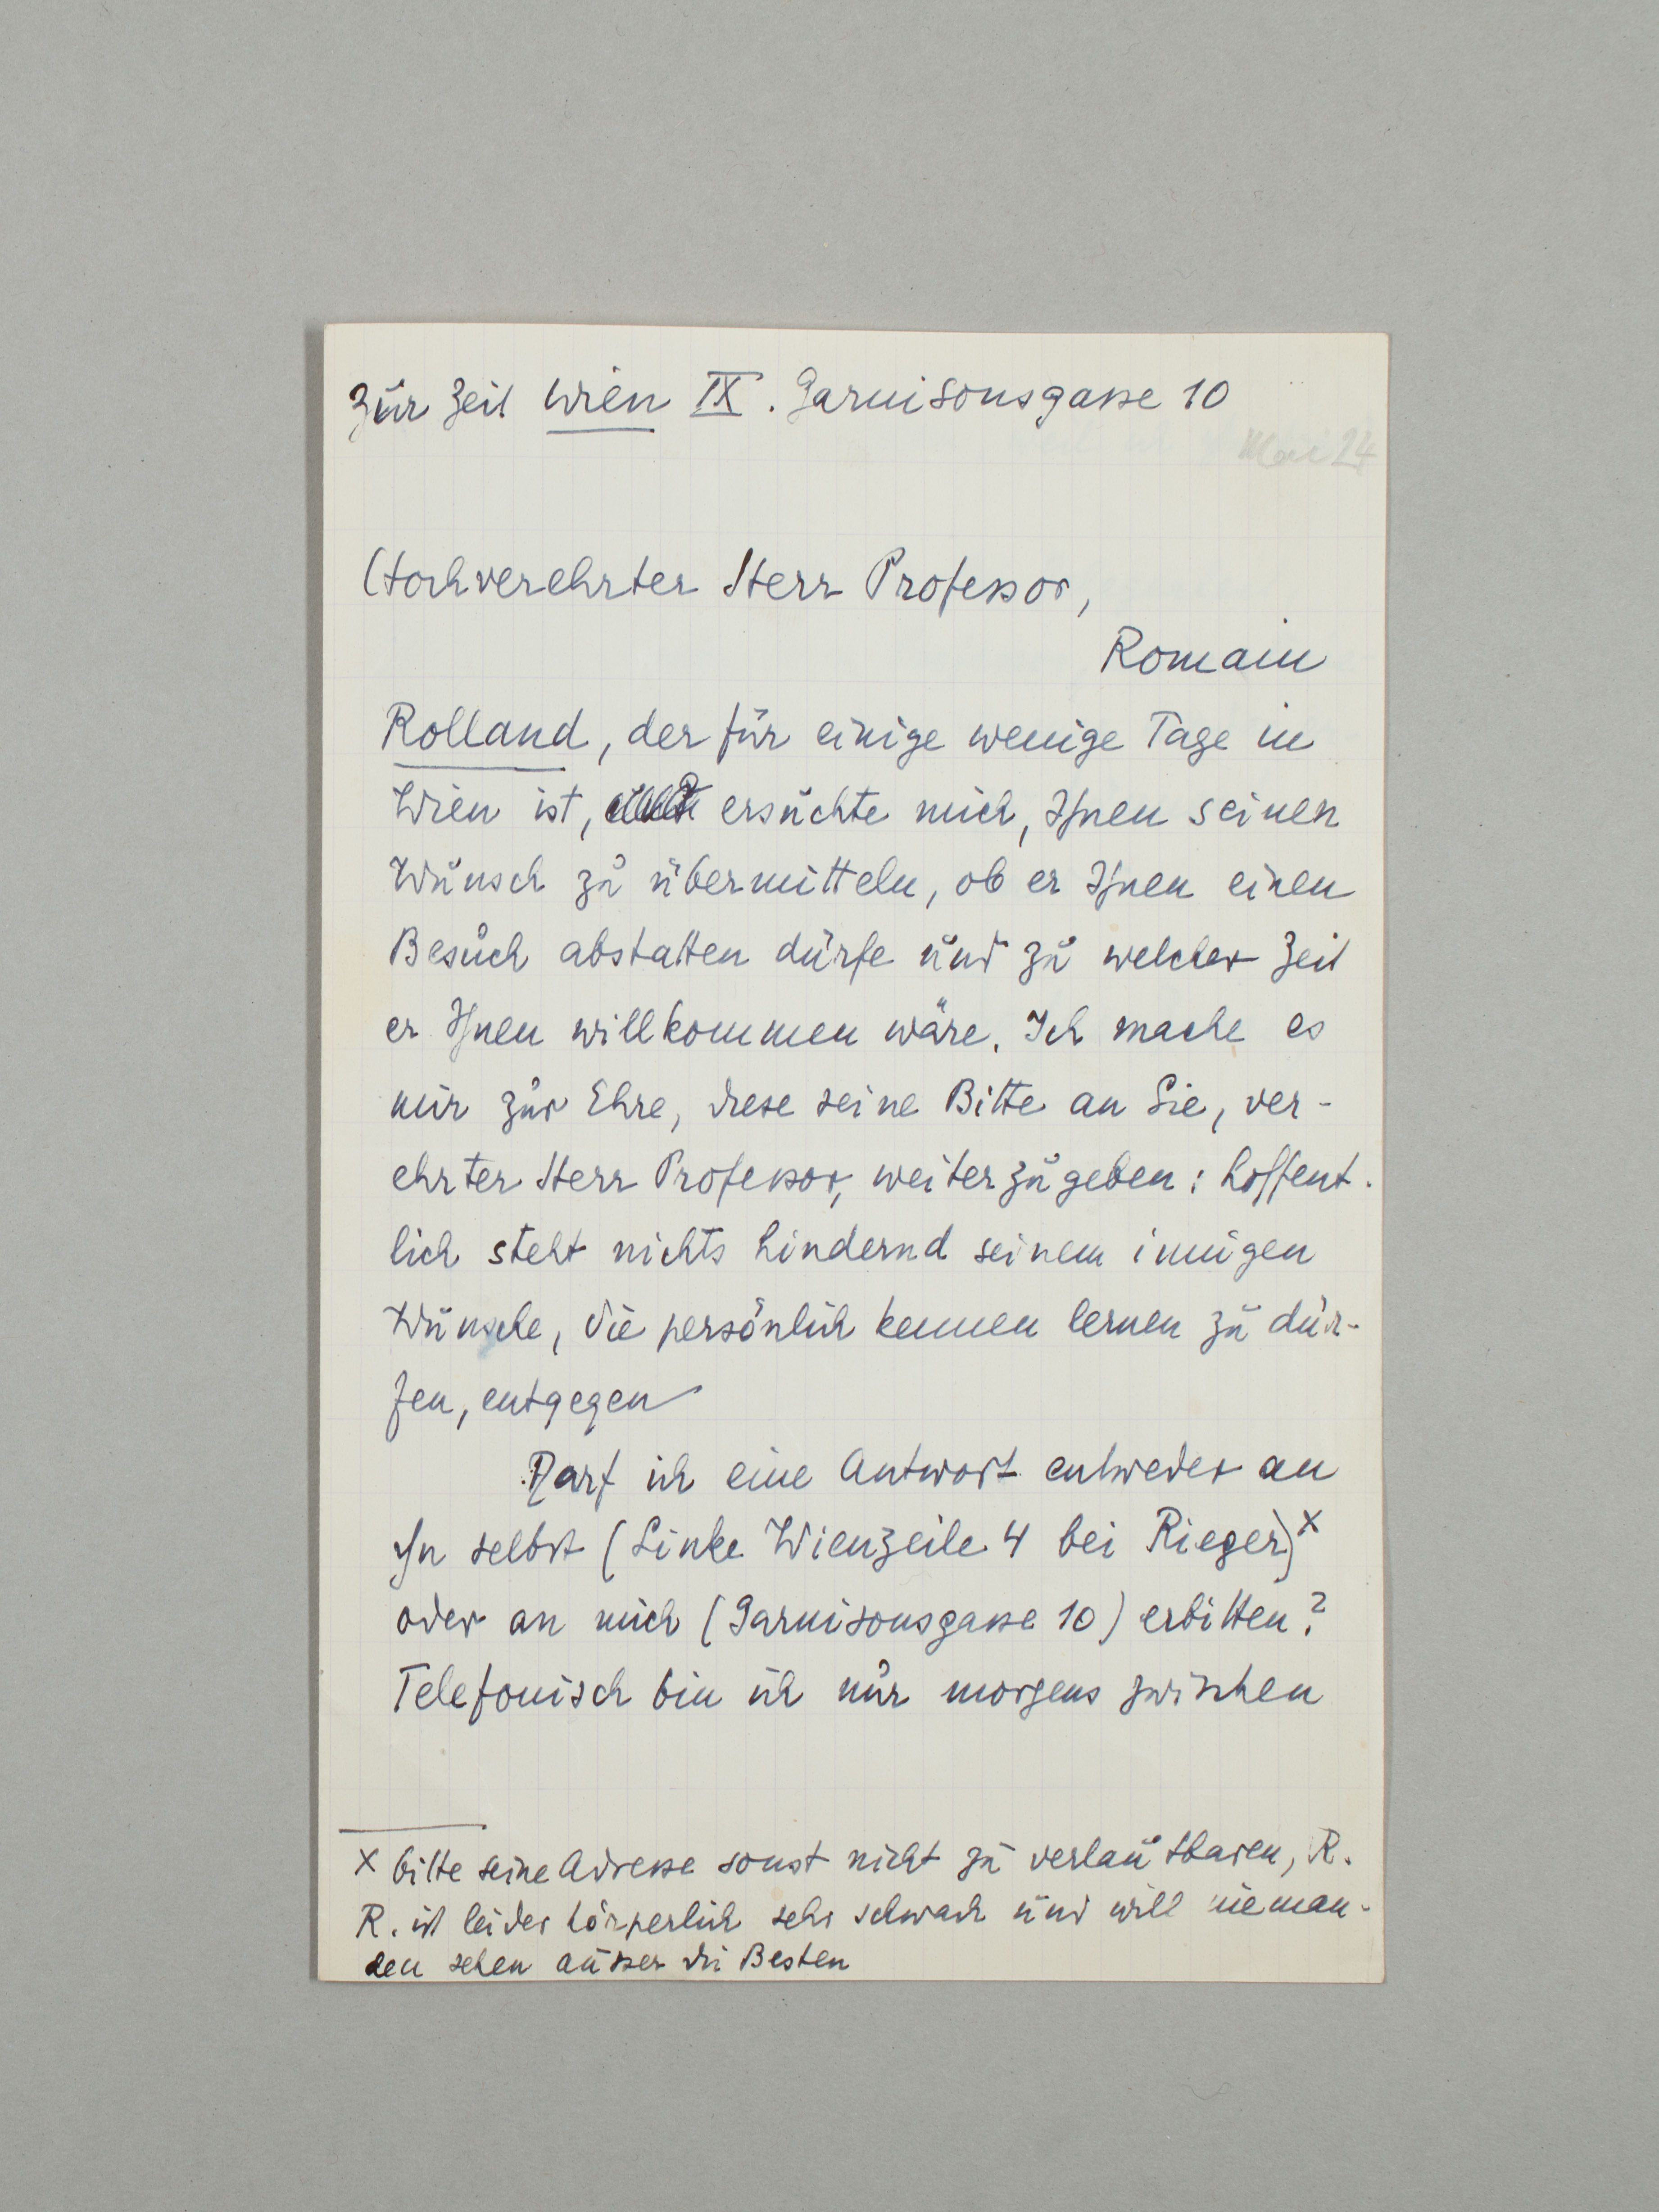 Zur Zeit Wien IX. Garnisonsgasse 10
Mai 24
Hochverehrter Herr Professor,
Romain
Rolland, der für einige wenige Tage in
Wien ist, ersuchte mich, Ihnen seinen
Wunsch zu übermitteln, ob er Ihnen einen
Besuch abstatten dürfe und zu welcher Zeit
er Ihnen willkommen wäre. Ich mache es
mir zur Ehre, diese seine Bitte an Sie, ver-
ehrter Herr Professor, weiterzugeben: hoffent-
lich steht nichts hindernd seinem innigen
Wunsche, Sie persönlich kennen lernen zu dür-
fen, entgegen
Darf ich eine Antwort entweder an
Ihn selbst (Linke Wienzeile 4 bei Rieger) x
oder an mich (Garnisonsgasse 10) erbitten?
Telefonisch bin ich nur morgens zwischen
x bitte seine Adresse sonst nicht zu verlautbaren, R.
R. ist leider körperlich sehr schwach und will nieman-
den sehen ausser die Besten